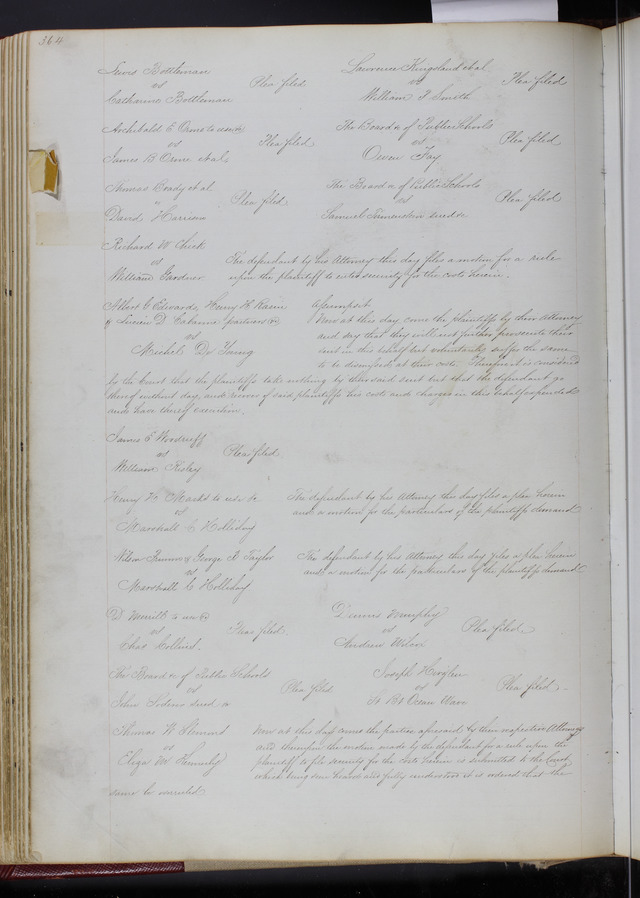 364
Lewis Bottleman
vs Plea filed
Catharine Bottleman
Lawrence Kingsland et al
vs Plea filed
William T Smith
Archibald C Orme to use &c
vs Plea filed
James B Orme et als
The Board &c of Public Schools
vs Plea filed
Owen Fay
Thomas Coady et al
vs Plea filed
David Harrison
The Board &c of Public Schools
vs Plea filed
Samuel
Richard W Chick
vs
William Gardner
The defendant by his Attorney this day files a motion for a rule
upon the plaintiff to enter security for the costs herein.
Albert G Edwards Henry H
& Lucien D Cabanne partners &c
vs
Michel De Young
Assumpsit
Now at this day come the plaintiffs by their Attorney
and say that they will not further prosecute their
suit in this behalf but voluntarily suffer the same
to be dismissed at their costs. Therefore it is considered
by the Court that the plaintiffs take nothing by their said suit but that the defendant go
thereof without day, and recover of said plaintiffs his costs and charges in this behalf expended
and have thereof execution.
James E Woodruff
vs Plea filed
William Risley
Henry W Marks to use &c
vs
Marshall C Holliday
The defendant by his Attorney this day files a plea herein
and a motion for the particulars of the plaintiffs demand
Wilson & George R Taylor
vs
Marshall C Holliday
The defendant by his Attorney this day files a plea herein
and a motion for the particulars of the plaintiffs demand
D Merrill to use &c
vs Pleas filed.
Chas Collins.
Dennis Murphy
vs Plea filed.
Andrew Wilson
The Board &c of Public Schools
vs Plea filed
John &c
Joseph
vs Plea filed.
St Bt Ocean Wave
Thomas W
vs
Eliza M Kennerly
Now at this day come the parties aforesaid by their respective Attorneys
and thereupon the motion made by the defendant for a rule upon the
plaintiff to file security for the costs herein is submitted to the Court
which being seen heard and fully understood it is ordered that the
same be overruled